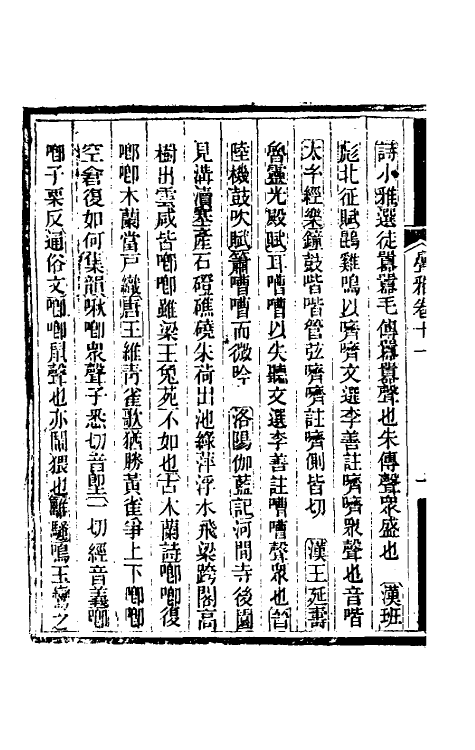 疊雅卷十一
詩小雅選徒囂囂毛傳囂囂聲也朱傳聲眾盛也　漢班
彪北征賦鵾雞鳴以嚌嚌文選李善註嚌嚌眾聲也音喈
太子經樂鐘鼓喈喈管弦嚌嚌註嚌側皆切　漢王延壽
魯靈光殿賦耳嘈嘈以失聽文選李善註嘈嘈聲眾也晉
陸機鼓吹賦簫嘈嘈而微吟　洛陽伽藍記河間寺後園
見溝瀆蹇產石磴礁嶢朱荷出池綠萍浮水飛梁跨閣高
樹出雲咸皆唧唧雖梁王兔苑不如也古木蘭詩唧唧復
唧唧木蘭當戶織唐王維青雀歌猶勝黃雀爭上下唧唧
空倉復如何集韻啾唧眾聲子悉切音堲一切經音義唧
唧子栗反通俗文唧唧鼠聲也亦鬧猥也離騷鳴玉鸞之